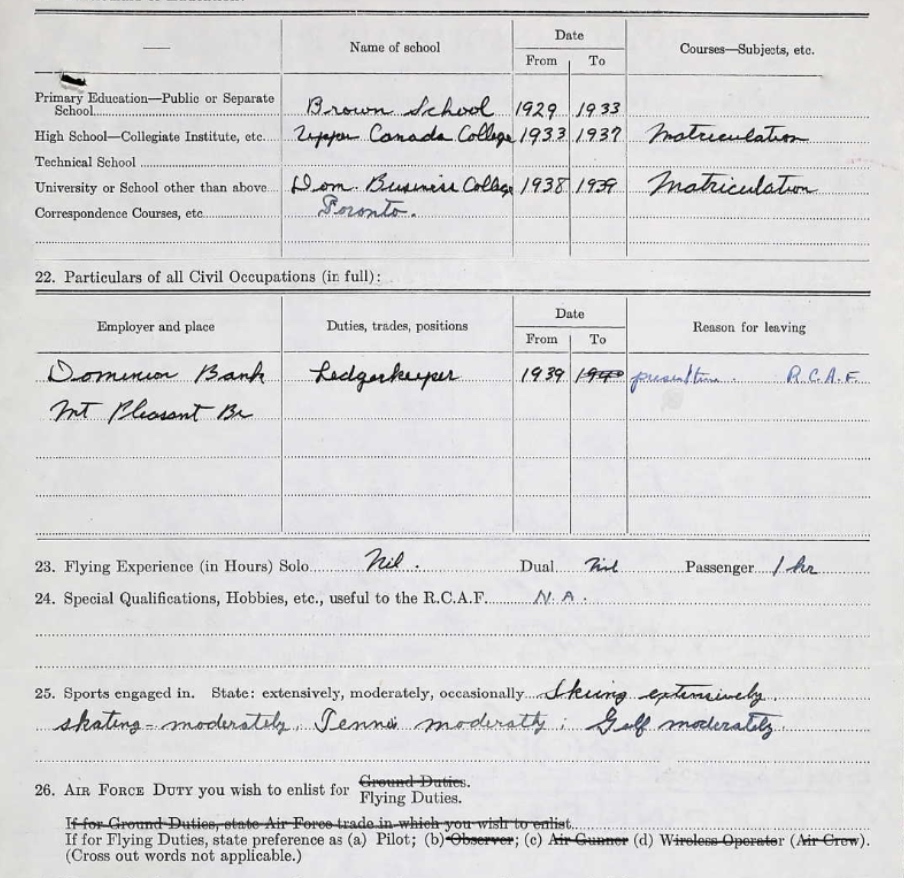 — Name of school Date Courses—Subjects, etc.
From To
Primary Education—Public or Separate
School Brown School 1929 1933
High School—Collegiate Institute, etc. Upper Canada College 1933 1937 Matriculation
Technical School
University or School other than above Dom. Business College 1938 1939 Matriculation
Correspondence Courses, etc. Toronto.
22. Particulars of all Civil Occupations (in full):
Employer and place Duties, trades, positions Date Reason for leaving
From To
Dominion Bank Ledgerkeeper 1939 1940 present time. R.C.A.F.
Mt Pleasant Br
23. Flying Experience (in Hours) Solo Nil. Dual Nil Passenger 1 hr
24. Special Qualifications, Hobbies, etc., useful to the R.C.A.F. N.A.
25. Sports engaged in. State: extensively, moderately, occasionally Skiing extensively.
skating - moderately, Tennis moderatly; Golf moderately.
26. AIR FORCE DUTY you wish to enlist for Ground Duties.
Flying Duties.
If for Ground Duties, state Air Force trade in which you wish to enlist
If for Flying Duties, state preference as (a) Pilot; (b) Observer; (c) Air Gunner (d) Wireless Operator (Air Crew).
(Cross out words not applicable.)